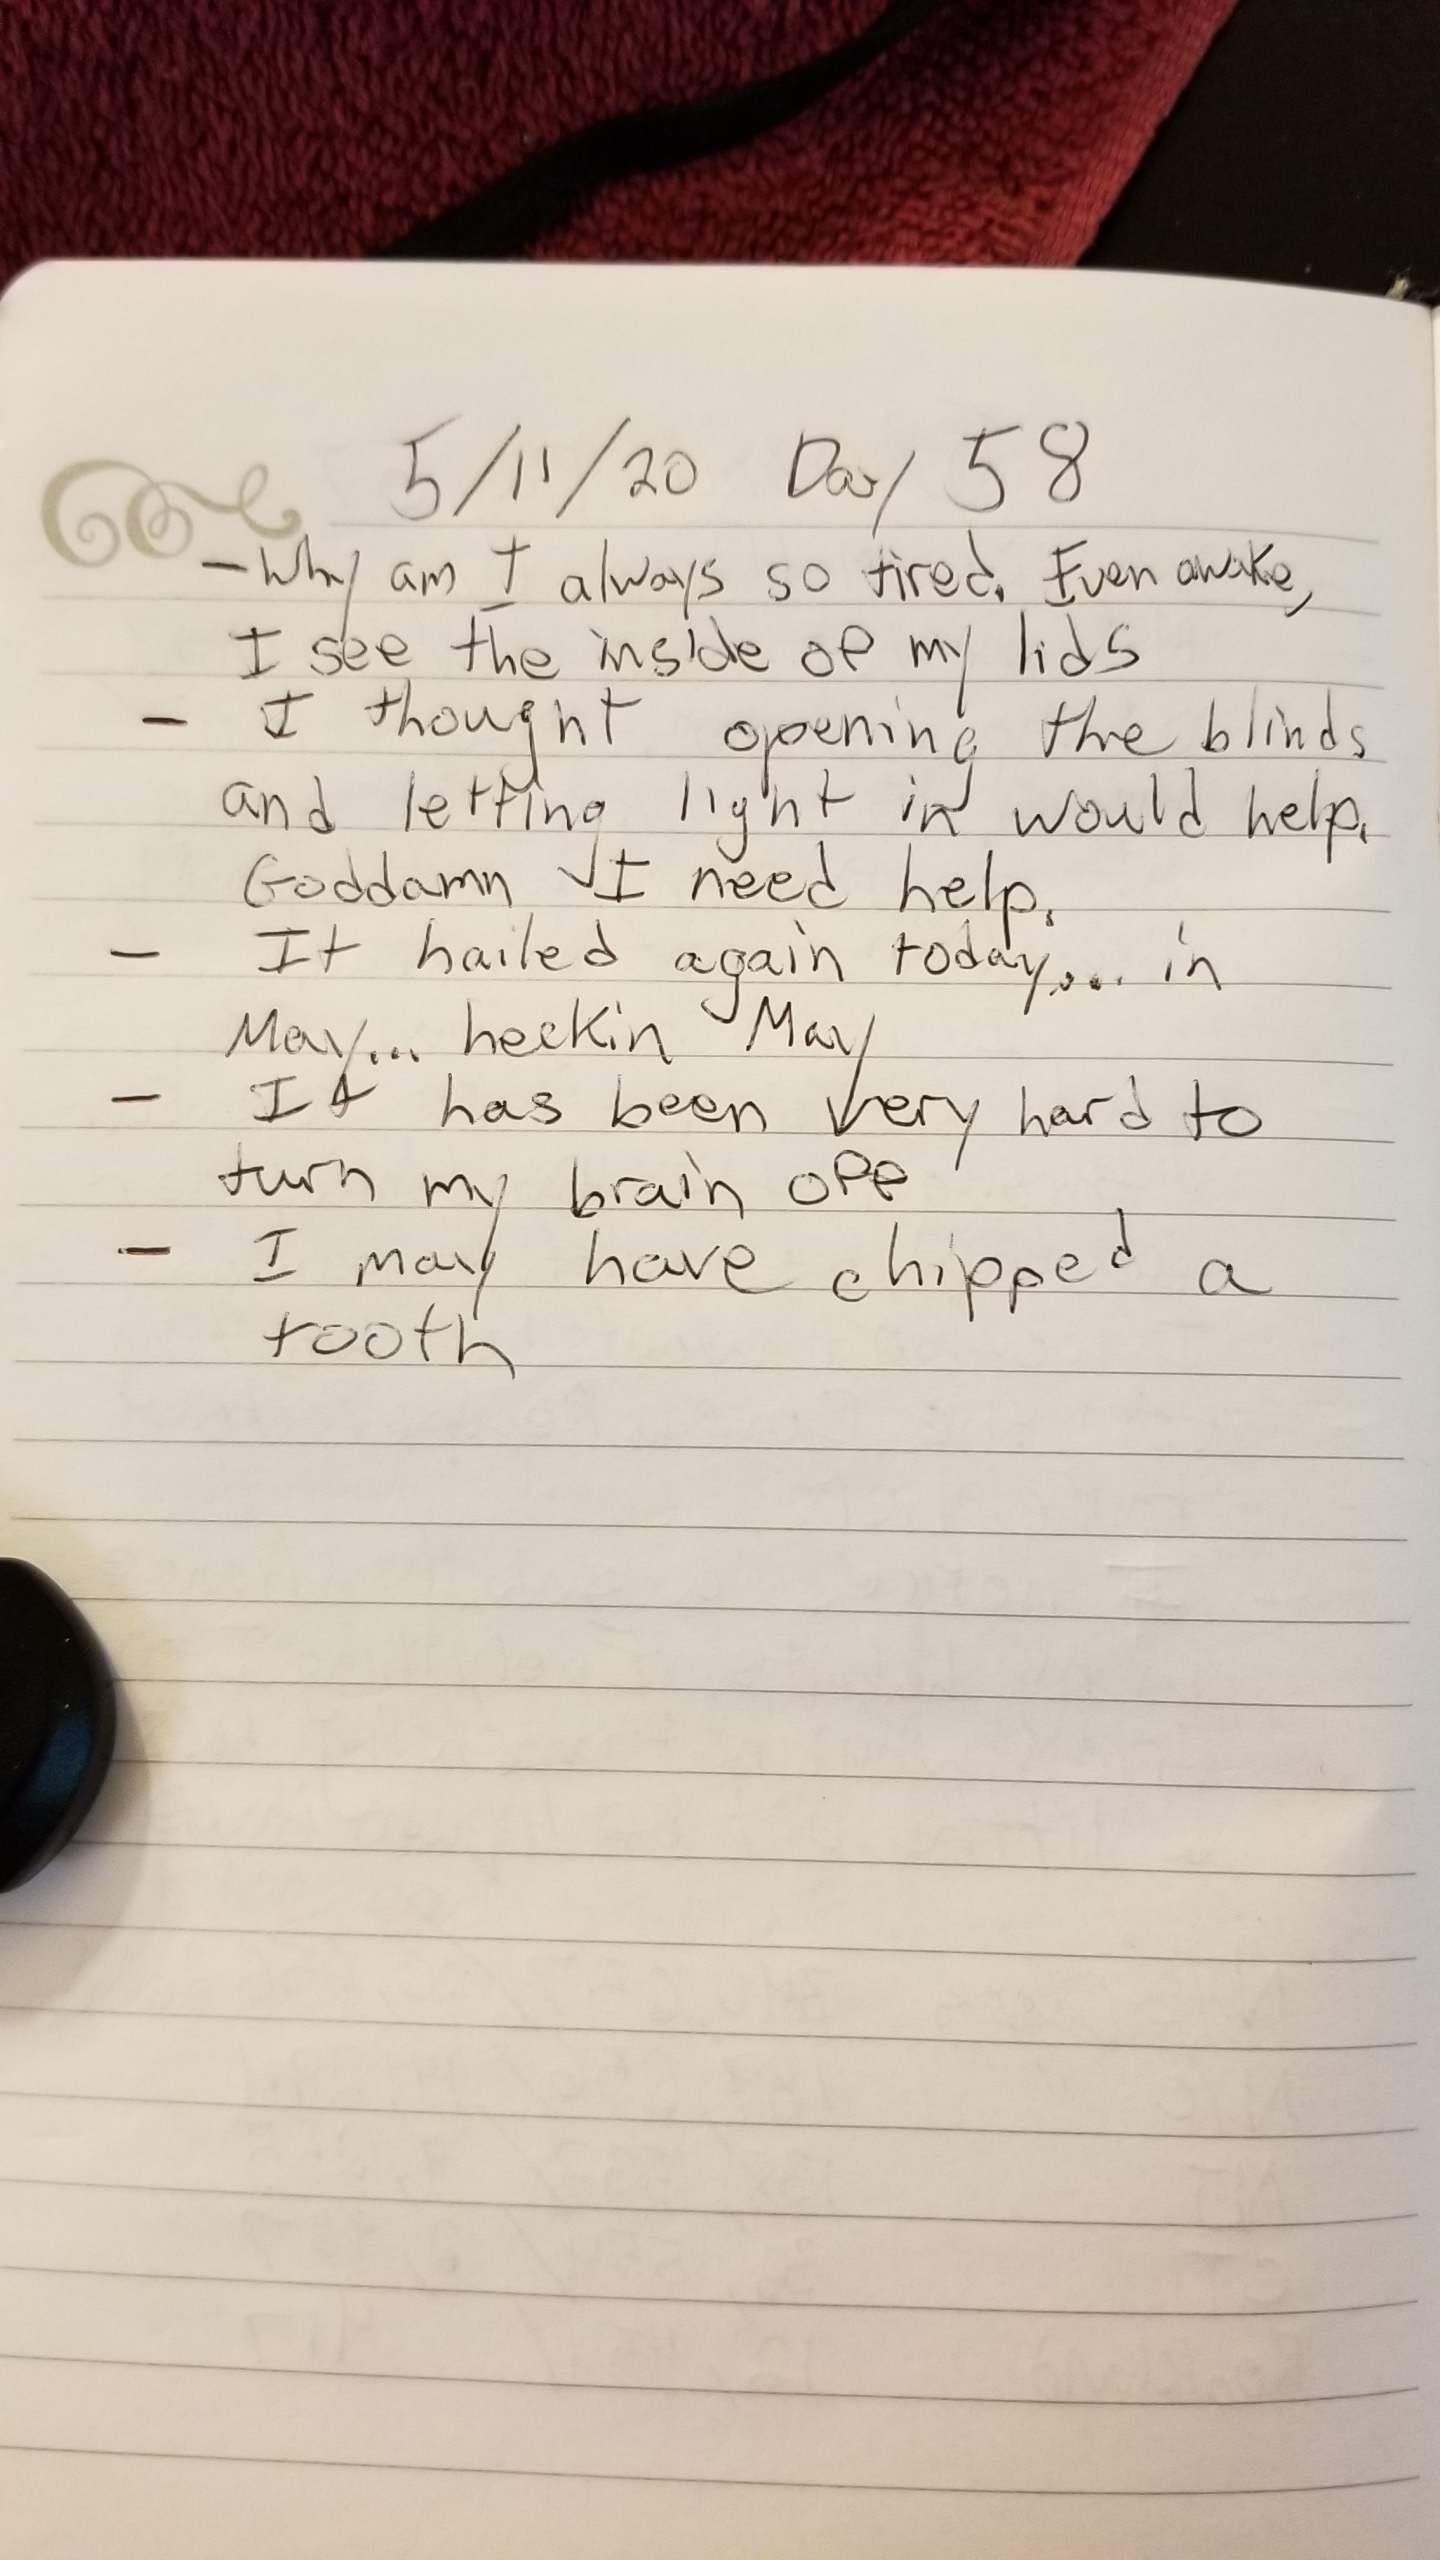 5/11/20 Day 58
- Why am I always so tired. Even awake,
I see the inside of my lids
- I thought opening the blinds
and letting light in would help.
Goddamn I need help.
- It hailed again today... in
May... heckin May
- It has been very hard to
turn my brain off
- I may have chipped a
tooth